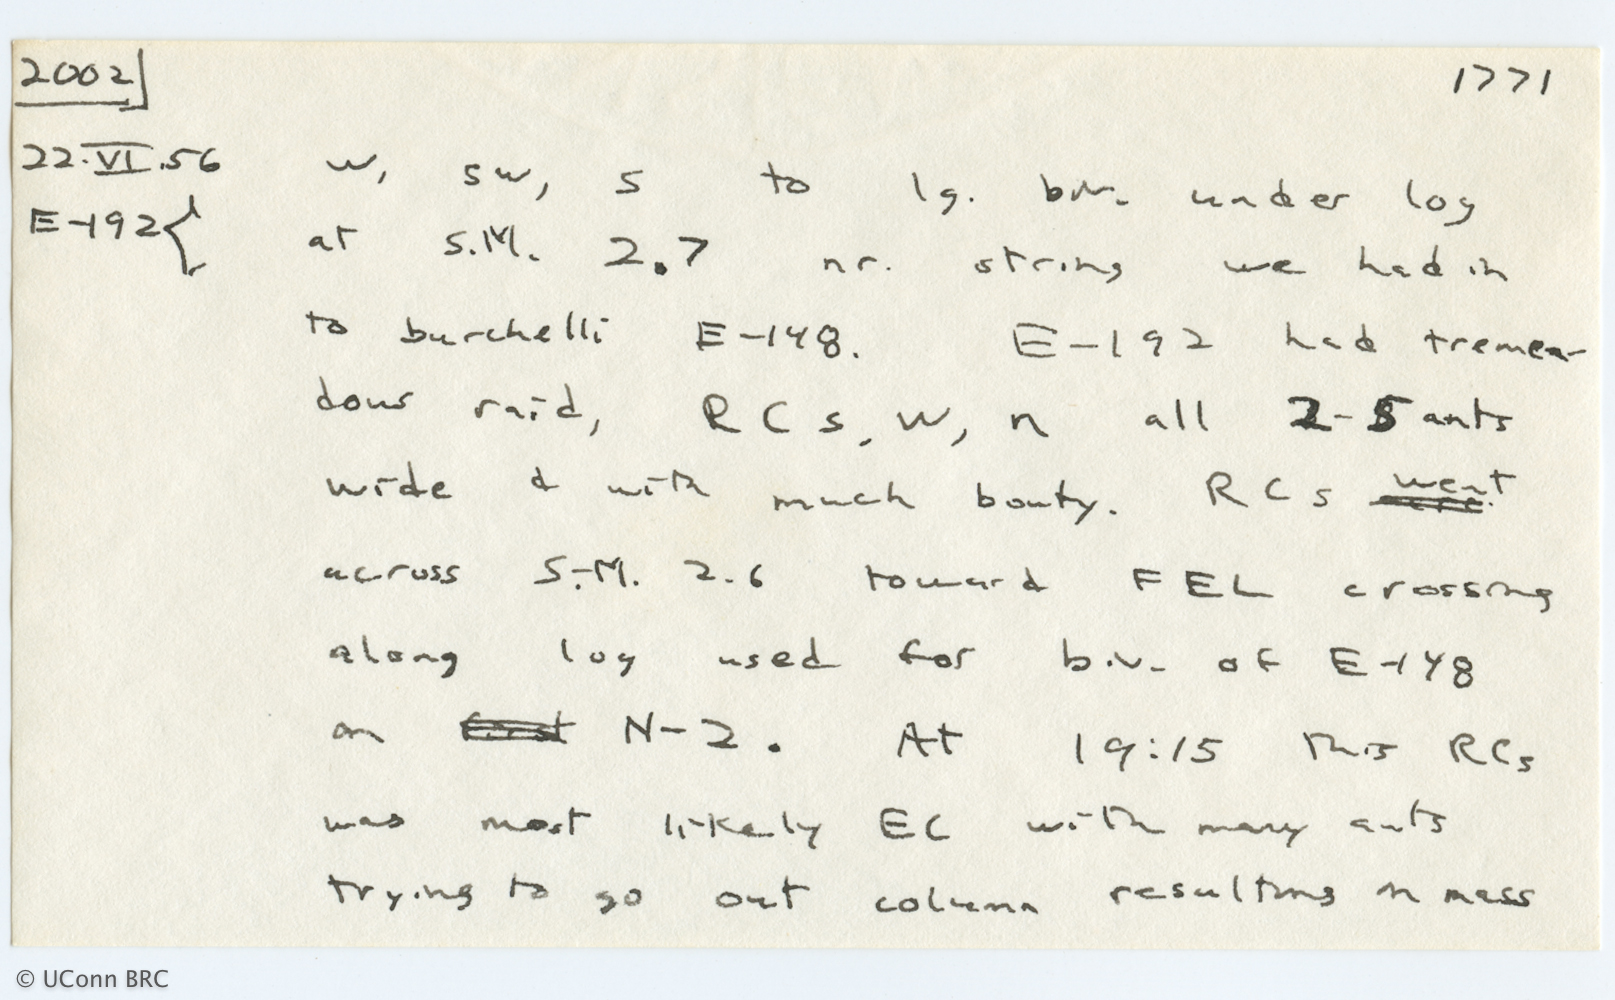 2002 1771
22.VI.56 w, sw, s to lg. biv. under log
E-192{ at S.M. 2.7 nr. string we had in
to burchelli E-148. E-192 had tremen-
dous raid, RCs, w, n all 2-5 ants
wide & with much booty. RCs went
across S.M. 2.6 toward FEL crossing
along log used for b.v. of E-148
on N-2. At 19:15 this RCs
was most likely EC with many ants
trying to go out column resulting in mass
© UConn BRC